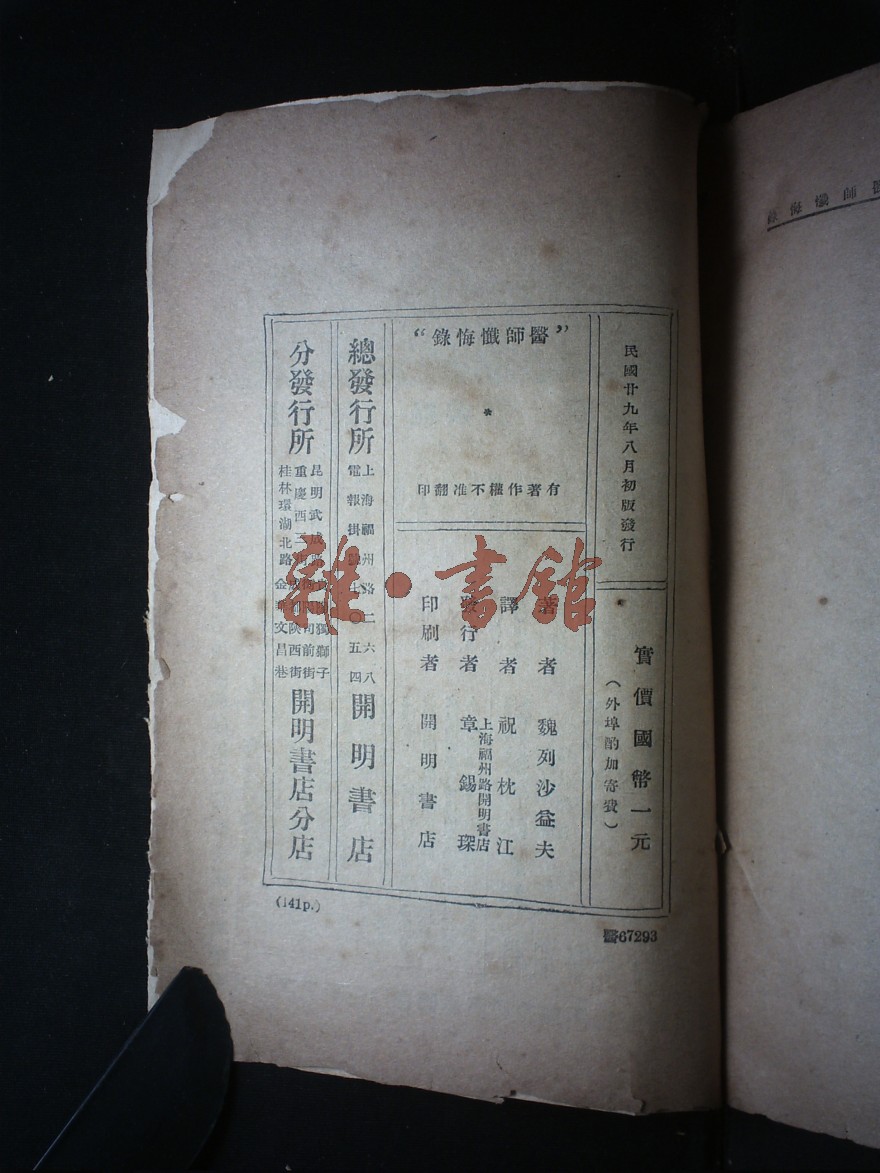 民國廿九年八月初版發行
實價國幣一元
（外埠酌加寄費）
”醫師懺悔錄“
*
有著作權不准翻印
著者 魏列沙益夫
譯者 祝枕江
發行者 上海福州路開明書店
章錫琛
印刷者 開明書店
總發行所
上海福州路二六八
電報掛號七〇五四
開明書店
分發行所
昆明武成路
獅子
重慶西
西街
桂林環湖北路
金華文昌巷
開明書店分店
(141p.)
醫67293
師懺悔錄
雜·書館